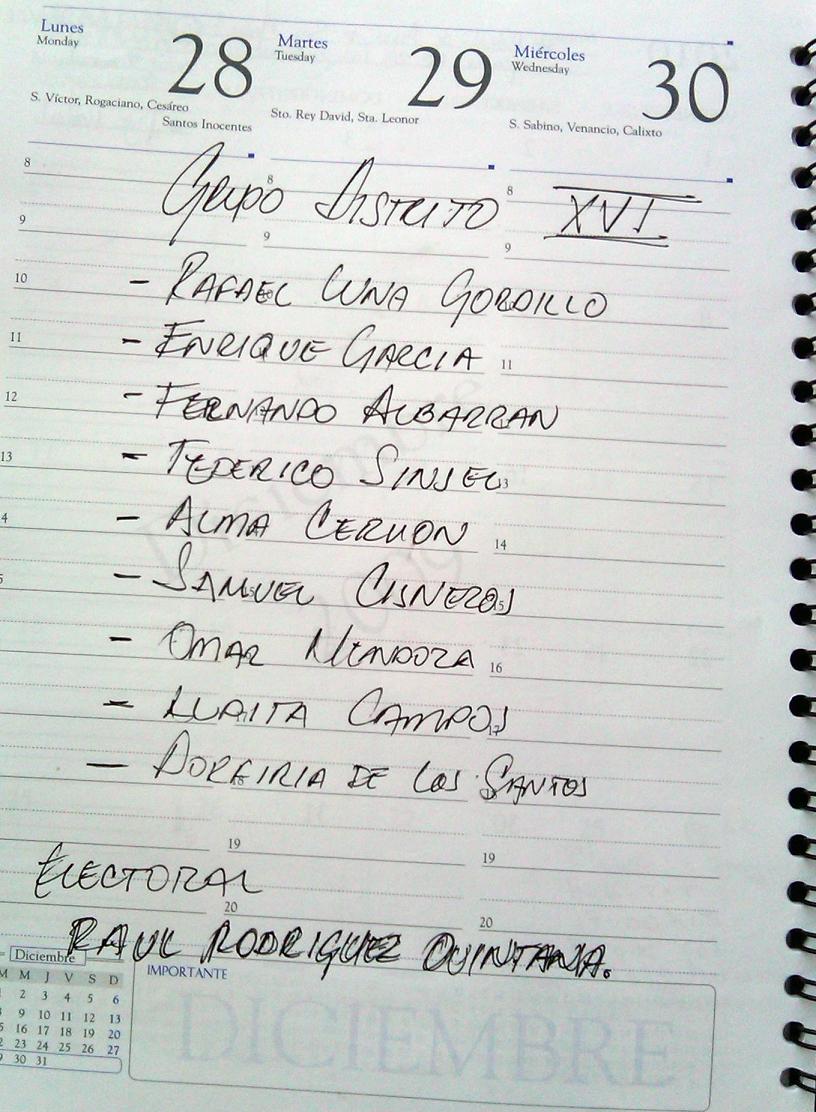 Lunes
Monday
28
S. Víctor, Rogaciano, Cesáreo
Santos Inocentes
Martes
Tuesday
29
Sto. Rey David, Sta. Leonor
Miércoles
Wednesday
30
S. Sabino, Venancio, Calixto
8 8 8
Grupo Distrito XVI
9 9 9
10 - RAFAEL LUNA GORDILLO
11 - ENRIQUE GARCIA 11
12 - FERNANDO ALBARRAN
13 - FEDERICO SINSEL
- ALMA CERUON 14
- SAMUEL CISNEROS 15
- OMAR MENDOZA 16
- LUPITA CAMPOS 17
- PORFIRIA DE LOS SANTOS
18
19 19
ELECTORAL
20 20
RAUL RODRIGUEZ QUINTANA.
Diciembre
M M J V S D
1 2 3 4 5 6
8 9 10 11 12 13
15 16 17 18 19 20
22 23 24 25 26 27
29 30 31
IMPORTANTE
DICIEMBRE
Diciembre
2009